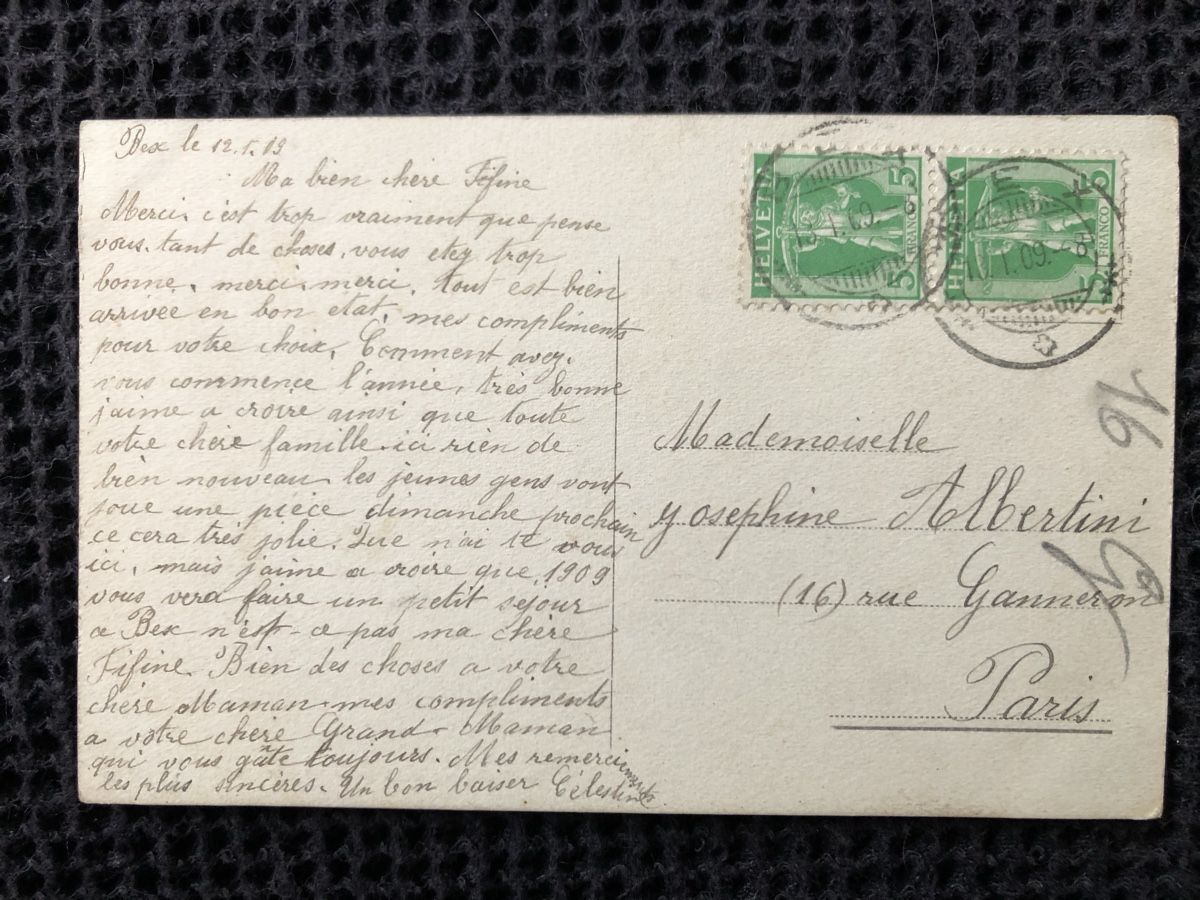 Bex le 12.1.09
Ma bien chère Fifine
Merci, c'est trop vraiment que pense
vous. tant de choses, vous etez trop
bonne, merci, merci, tout est bien
arrivée en bon etat, mes compliments
pour votre choix, Comment avez-
vous commence l'année, très bonne
j'aime a croire ainsi que toute
votre chère famille. ici rien de
bien nouveau les jeunes gens vont
joue une pièce dimanche prochain
ce cera très jolie. Que n'ai te vous
ici, mais j'aime a croire que, 1909
vous vera faire un petit sejour
a Bex n'est-a pas ma chère
Fifine. Bien des choses a votre
chère Maman. mes compliments
a votre chère Grand-Maman
qui vous gâte toujours. Mes remerciments
les plus sincères. Un bon baiser Célestine
HELVETIA 5 5 FRANCO
HELVETIA 5 5 FRANCO
BEX
1.09
BEX
1.09
16
Mademoiselle
Yosephine Albertini
(16) rue Ganneron
Paris